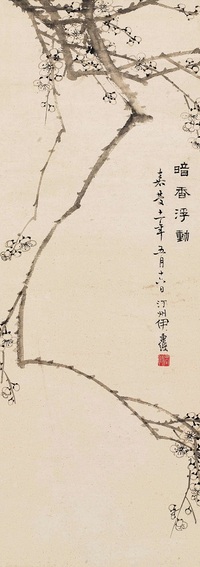 暗香浮動
嘉慶十一年五月十六日汀州伊秉綬